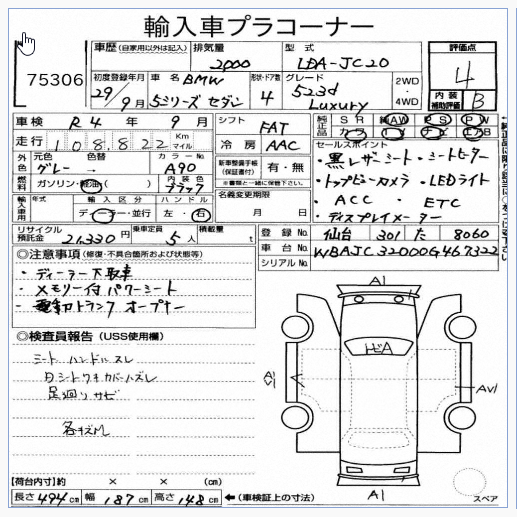 輸入車プラコーナー
75306
車歴 (自家用以外は記入) 排気量 型式
2000 LDA-JC20
初度登録年月 車名 形状・ドア数 グレード
29年 9月 BMW 5シリーズセダン 4 523d Luxury 2WD・4WD
評価点
4
内装補助評価 B
車検 R4年 9月
走行 108,822 Km マイル
シフト FAT
冷房 AAC
純正品 SR 純AW PS PW
カワ TV ナビ エアB
外色 元色 色替 カラーNo
グレー A90
燃料 ガソリン・軽油( ) 内装色 ブラック
輸入車用 年式 輸入区分 ハンドル
ディーラー・並行 左・右
新車整備手帳(保証書付) 有・無
※書類と一緒に保管下さい。
名義変更期限
月 日
セールスポイント
・黒レザーシート ・シートヒーター
・トップビューカメラ ・LEDライト
・ACC ・ETC
・ディスプレイメーター
リサイクル預託金 21,330円 乗車定員 5人 積載量 t
登録No. 仙台 301 た 8060
車台No. WBAJC32000G467322
シリアルNo.
◎注意事項 (修復・不具合箇所および状態等)
・ディーラー下取車
・メモリー付パワーシート
・電動トランクオープナー
◎検査員報告 (USS使用欄)
シートハンドルスレ
足廻リサビ
各キズM
A1
ヒビA
A1
AV1
A1
スペア
【荷台内寸】約 × × (cm)
長さ 494cm 幅 187cm 高さ 148cm ←(車検証上の寸法)